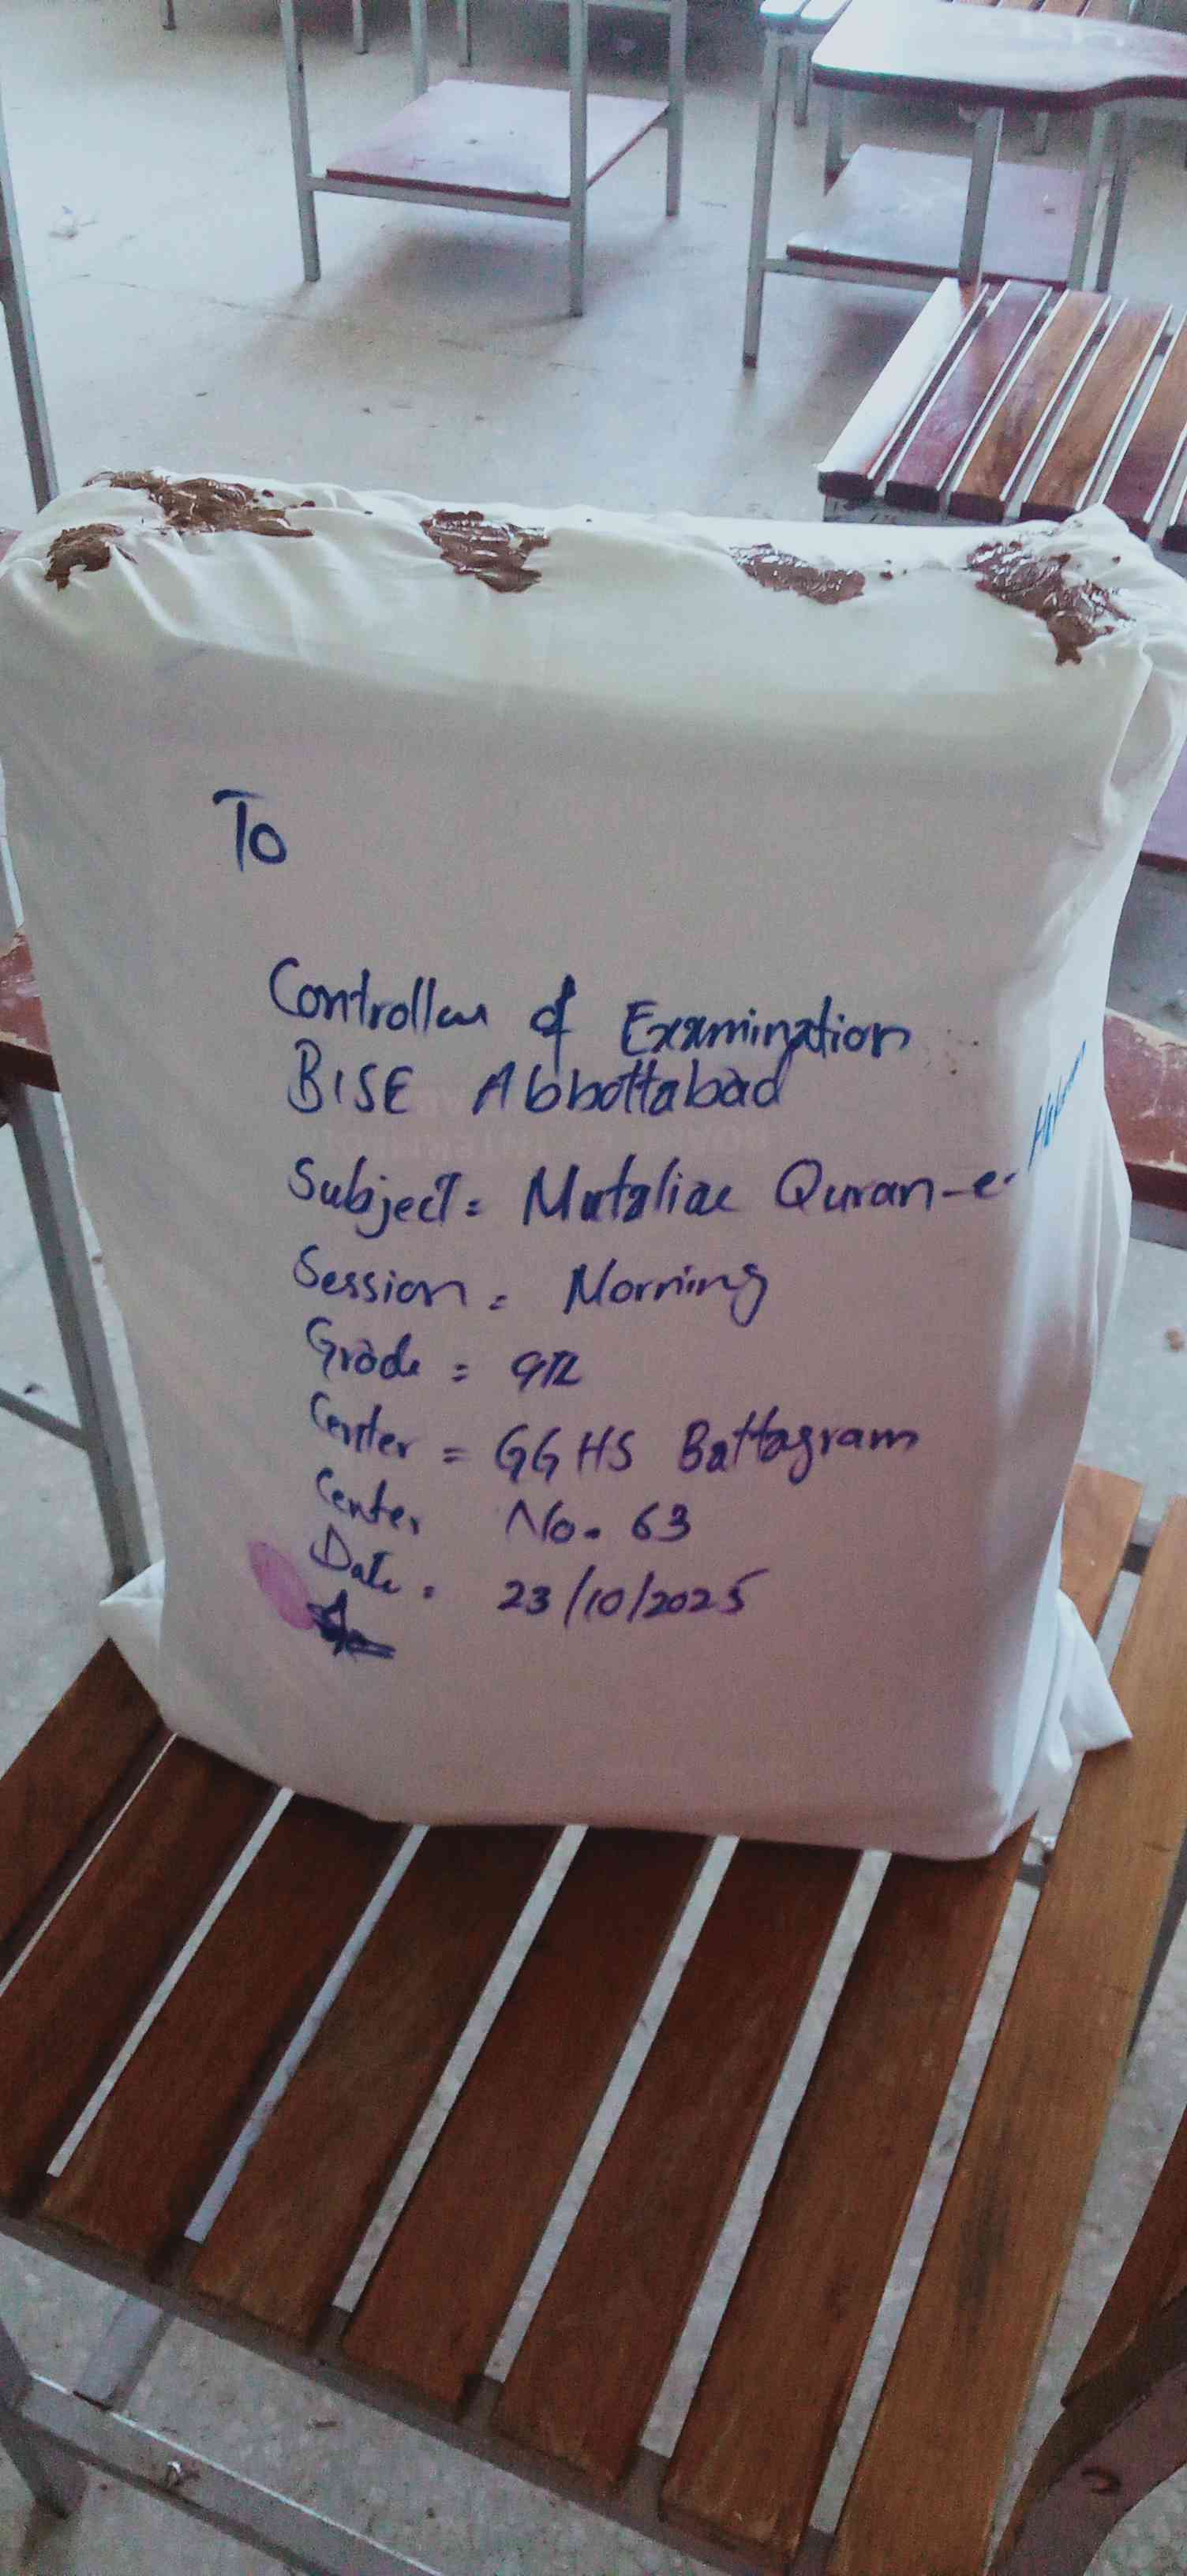 To
Controller of Examination
BISE Abbottabad
Subject = Mutaliae Quran-e-
Session = Morning
Grade = 9th
Center = GGHS Battagram
Center No. 63
Date = 23/10/2025